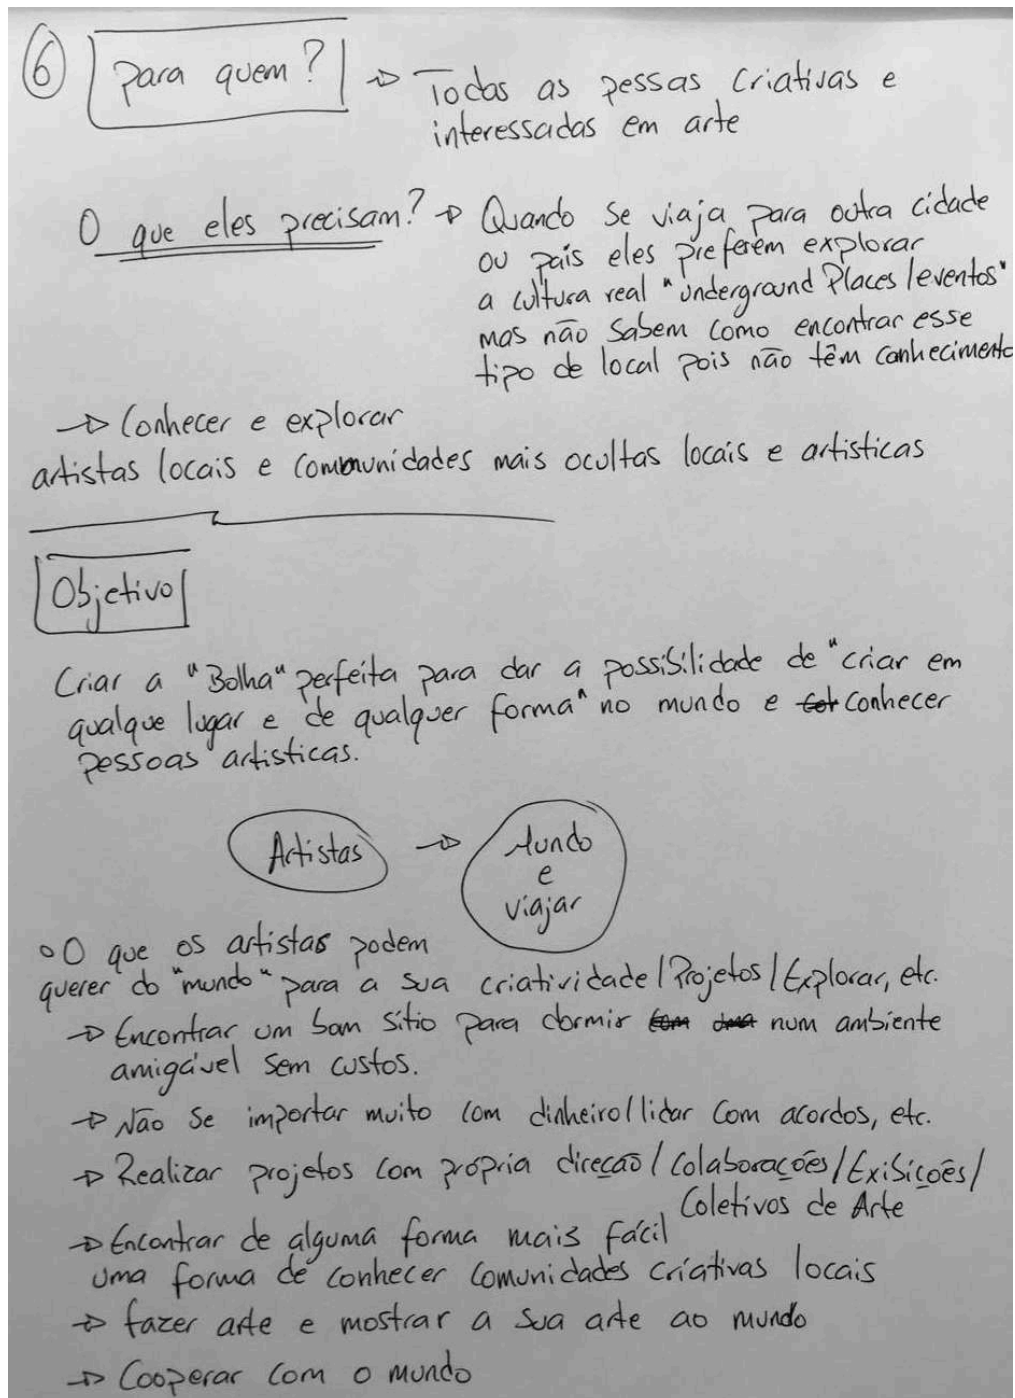 6 para quem? → Todas as pessas criativas e
interessadas em arte
O que eles precisam? → Quando se viaja para outra cidade
ou país eles preferem explorar
a cultura real "underground Places/eventos"
mas não sabem como encontrar esse
tipo de local pois não têm conhecimento
→ Conhecer e explorar
artistas locais e comunidades mais ocultas locais e artisticas
Objetivo
Criar a "Bolha" perfeita para dar a possibilidade de "criar em
qualque lugar e de qualquer forma" no mundo e conhecer
pessoas artisticas.
Artistas → Mundo
e
viajar
O que os artistas podem
querer do "mundo" para a sua criatividade/Projetos/Explorar, etc.
→ Encontrar um bom sítio para dormir num ambiente
amigável sem custos.
→ Não se importar muito com dinheiro/lidar com acordos, etc.
→ Realizar projetos com própria direção/Colaborações/Exibições/
Coletivos de Arte
→ Encontrar de alguma forma mais fácil
uma forma de conhecer comunidades criativas locais
→ fazer arte e mostrar a sua arte ao mundo
→ Cooperar com o mundo